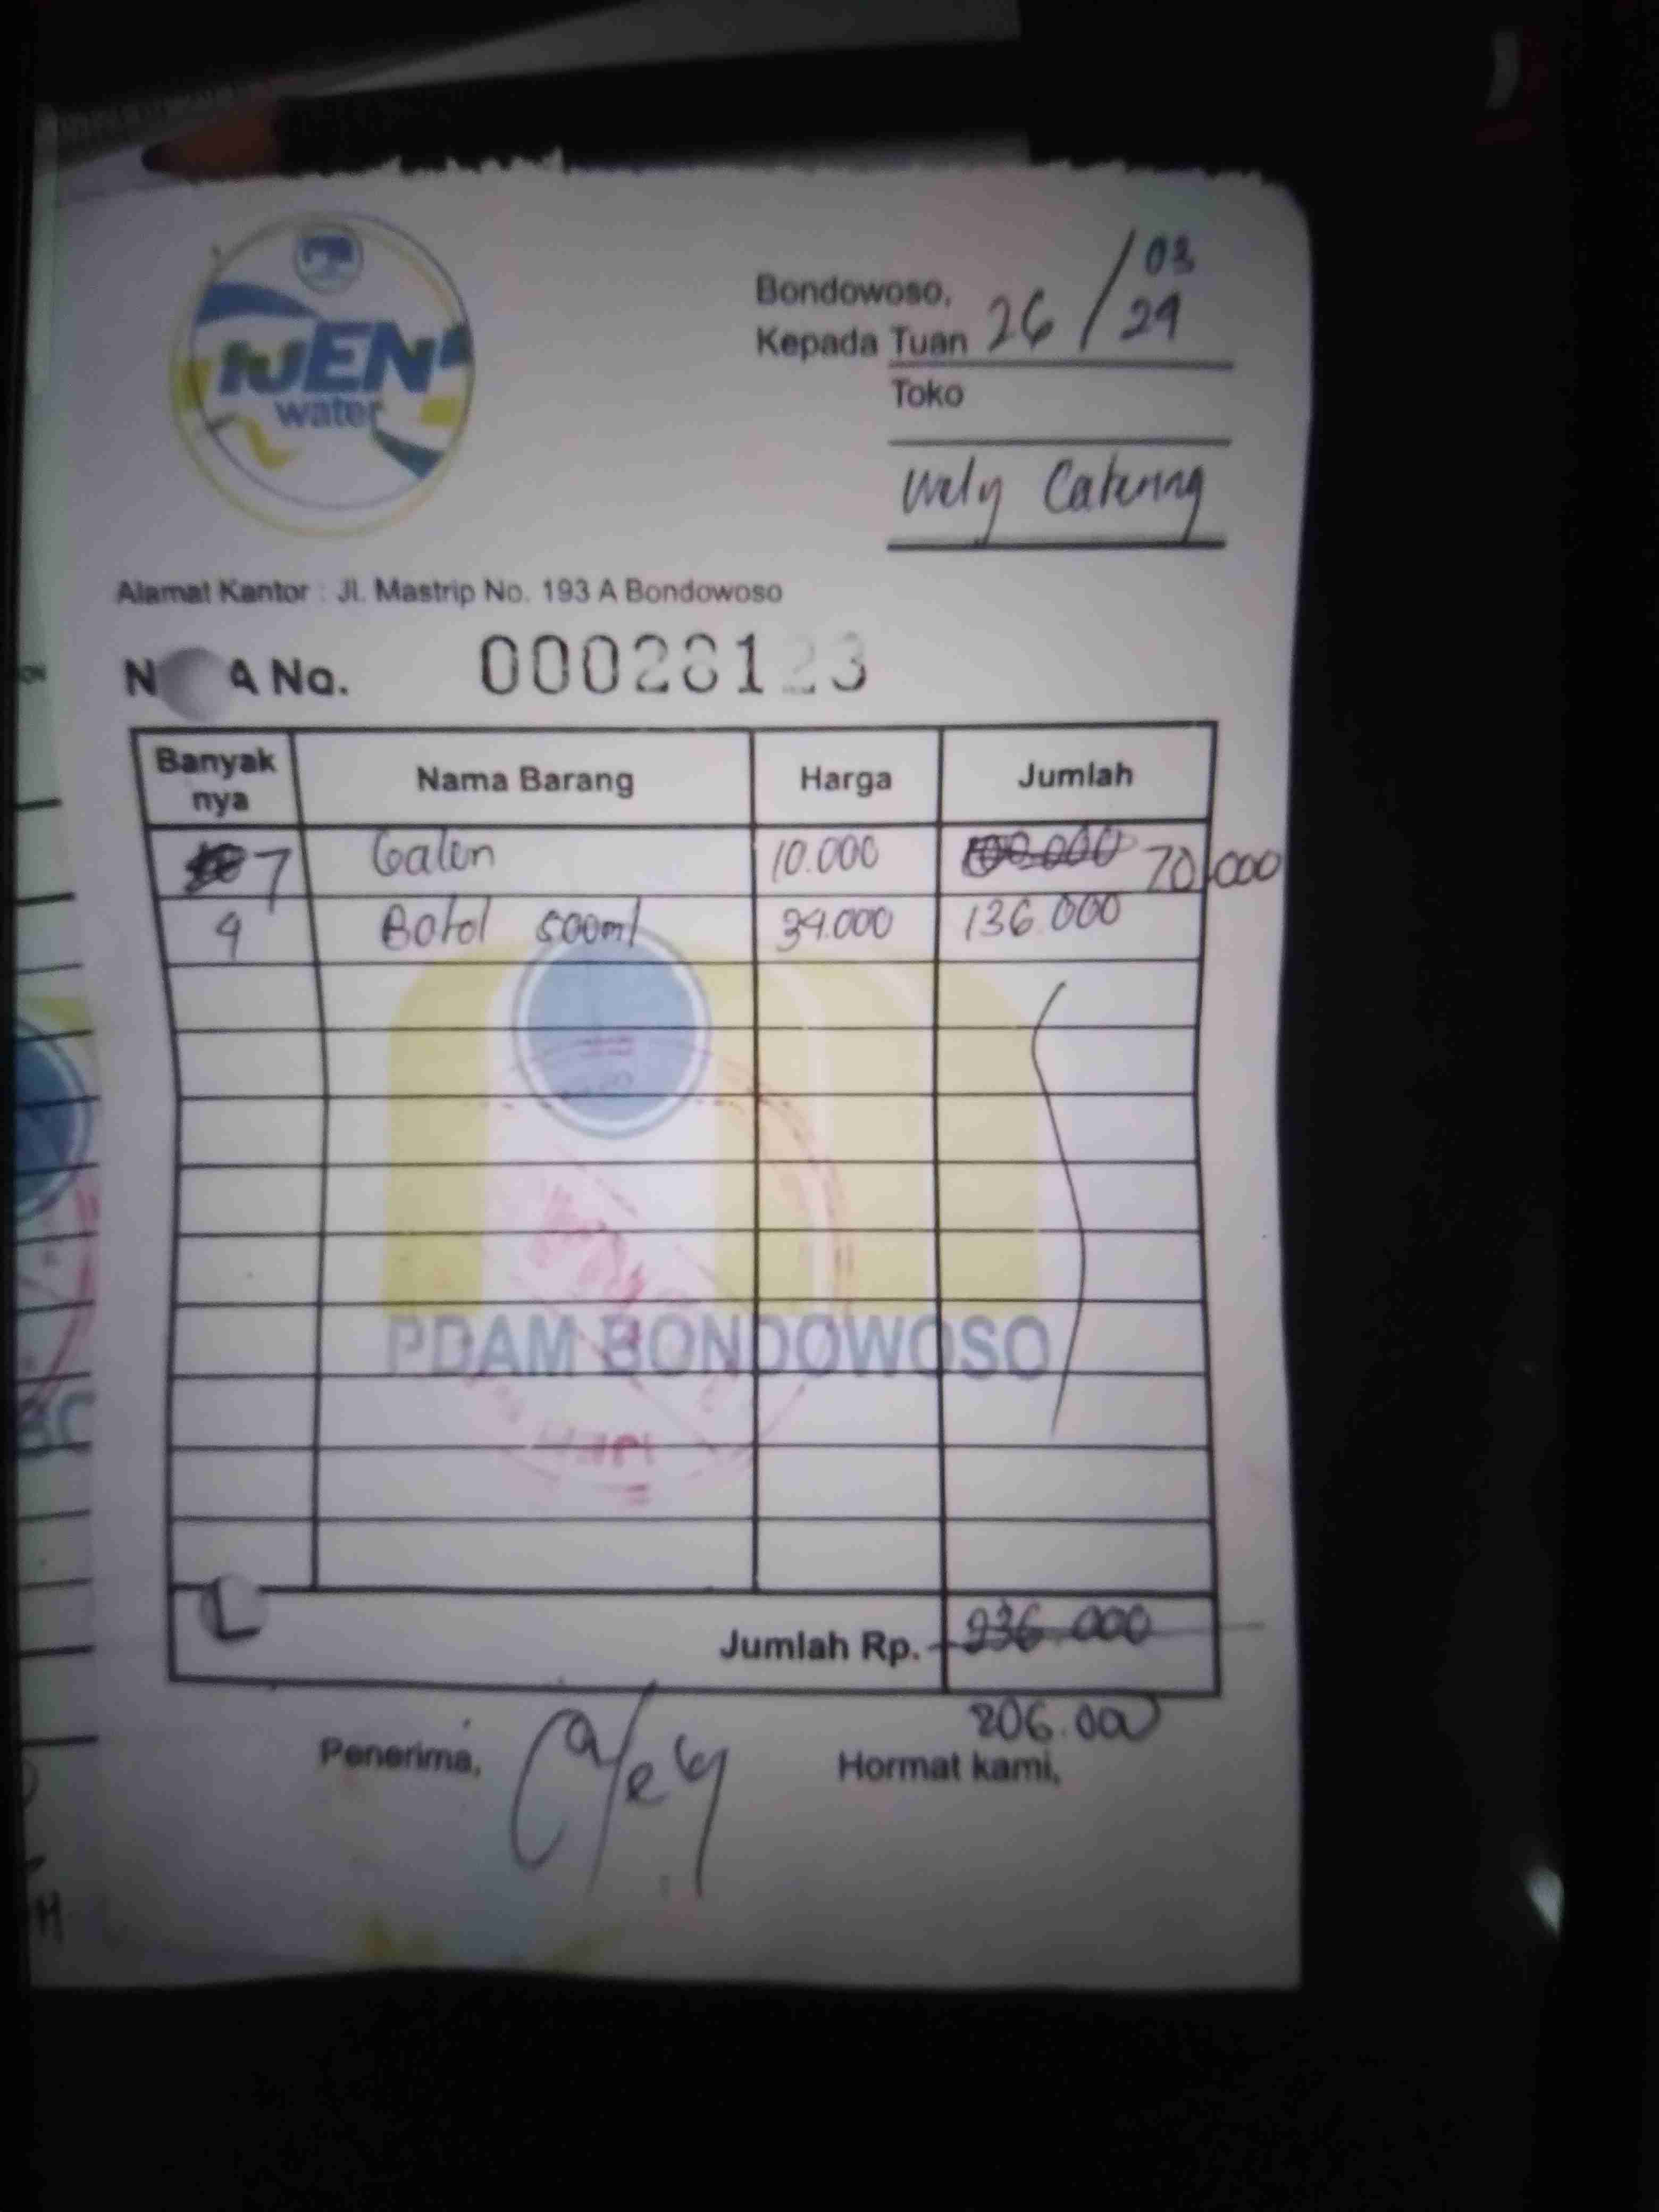 IJEN
water
Bondowoso, 26/03
24
Kepada Tuan
Toko
Wely Catering
Alamat Kantor : Jl. Mastrip No. 193 A Bondowoso
N A No. 00028123
Banyak nya Nama Barang Harga Jumlah
10 7 Galon 10.000 100.000 70.000
4 Botol 500ml 34.000 136.000
PDAM BONDOWOSO
Jumlah Rp. 236.000
206.000
Penerima, Hormat kami,